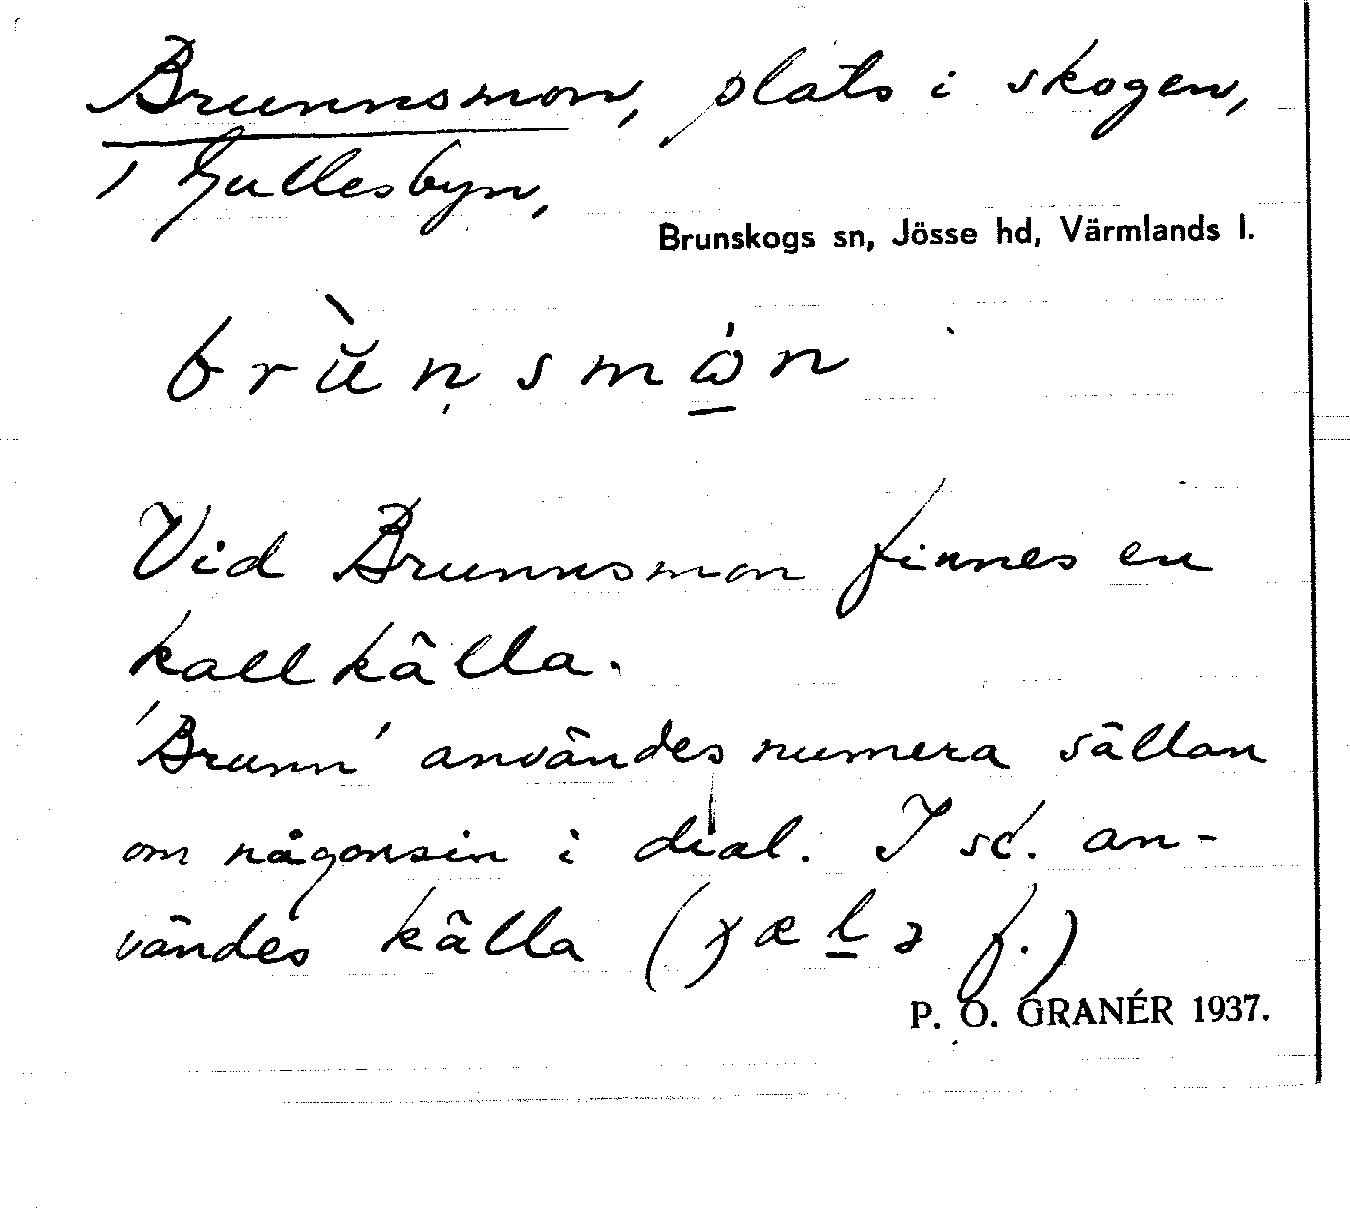 Brunnsmon, plats i skogen,
1 Gullesbyn,
Brunskogs sn, Jösse hd, Värmlands l.
brŭ̀nsmώ̲n
Vid Brunnsmon finnes en
kallkälla.
'Brunn' användes numera sällan
om någonsin i dial. I st. an-
vändes källa (χæl̲ə f.)
P. O. GRANÉR 1937.